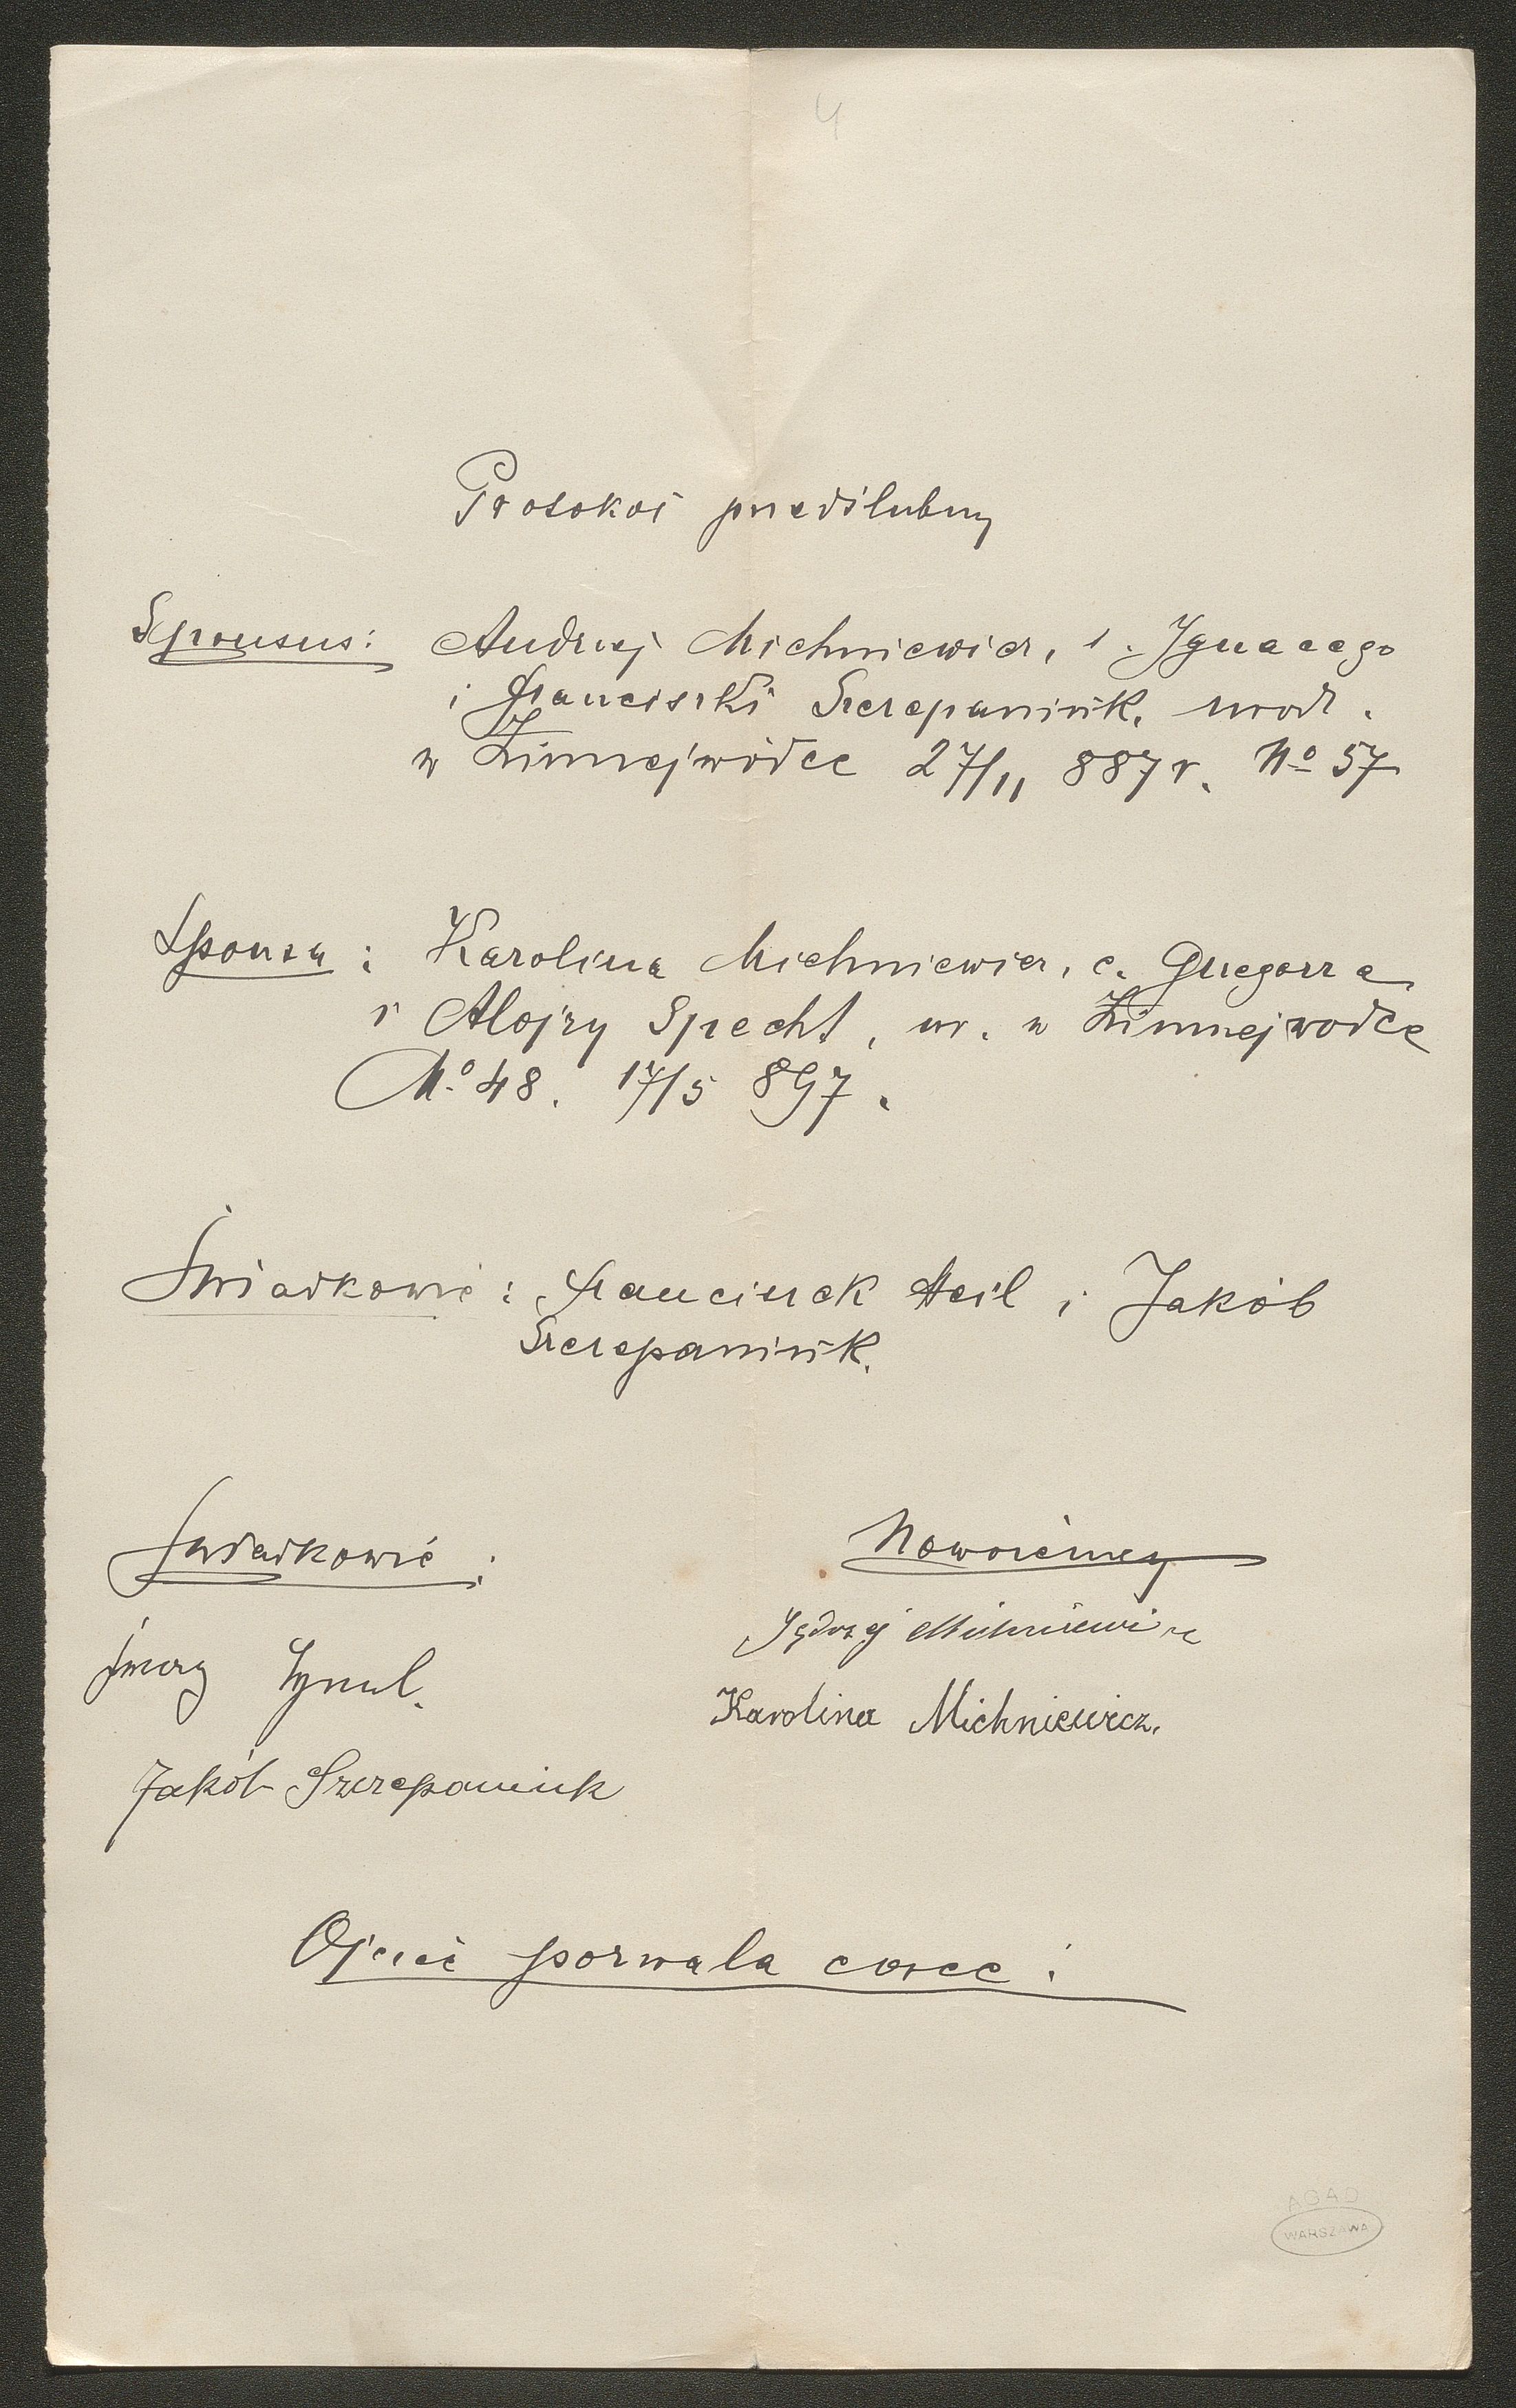 4
Protokół przedślubny
Sponsus: Andrzej Michniewicz, s. Ignacego
i Franciszki Szczepaniuk, urodz.
w Zimnejwódce 27/11 887 r. No 57
Sponsa: Karolina Michniewicz, c. Grzegorza
i Alojzy Specht, ur. w Zimnejwodce
No 48. 17/5 897.
Świadkowie: Franciszek Heil i Jakób
Szczepaniuk.
Świadkowie:
Nowożeńcy
Jędrzej Michniewicz
Karolina Michniewicz.
Jakób Szczepaniuk
Ojciec pozwala córce:
AGAD
WARSZAWA